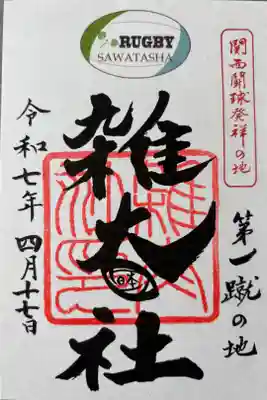 RUGBY
SAWATASHA
関西蹴球発祥の地
第一蹴の地
雑太社
令和七年 四月十七日